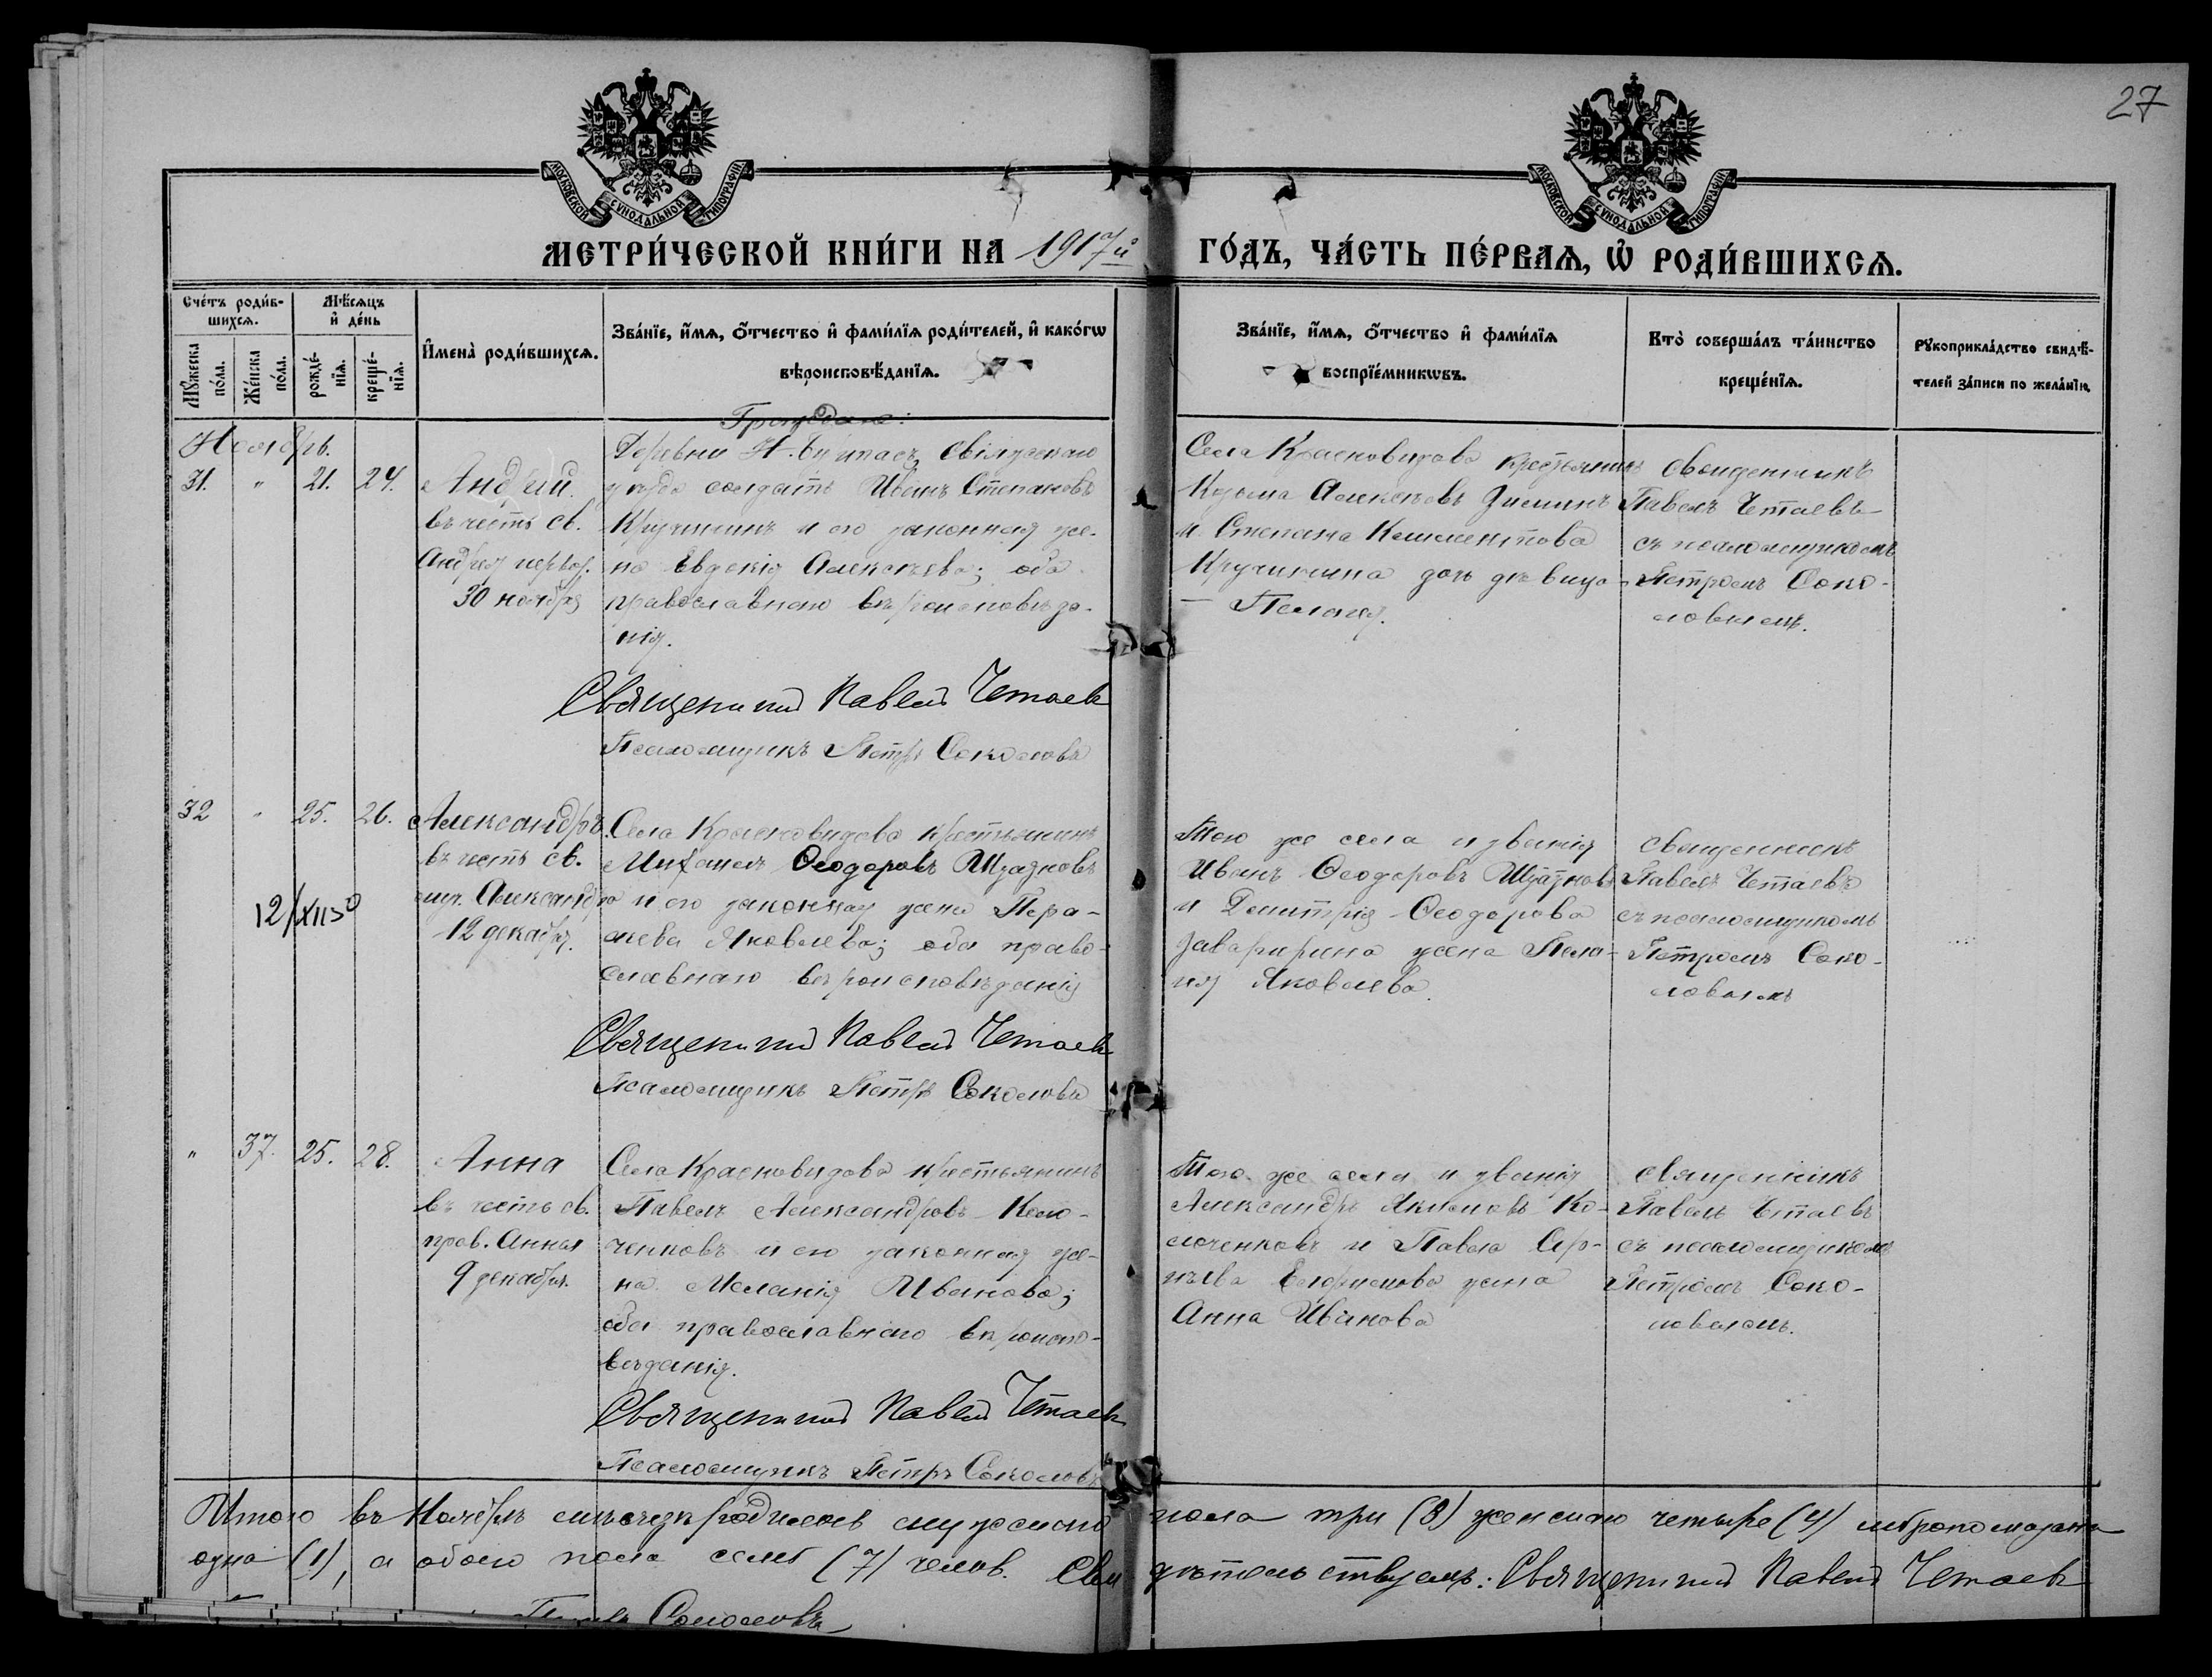 27
МОСКОВСКОЙ СѴНОДАЛЬНОЙ ТИПОГРАФІИ
МОСКОВСКОЙ СѴНОДАЛЬНОЙ ТИПОГРАФІИ
МЕТРИ́ЧЕСКОЙ КНИ́ГИ НА 1917й ГО́ДЪ, ЧА́СТЬ ПЕ́РВАѦ, Ѽ РОДИ́ВШИХСѦ.
Сче́тъ роди́в-
шихсѧ.
Мꙋжеска по́ла.
Же́нска по́ла.
Мѣ́сѧцъ
и҆ де́нь
рожде́-нїѧ.
креще́-нїѧ.
И҆мена̀ роди́вшихсѧ.
Зва́нїе, и҆́мѧ, ѻ҆́тчество и҆ фами́лїѧ роди́телей, и҆ како́гѡ
вѣроисповѣ́данїѧ.
Зва́нїе, и҆́мѧ, ѻ҆́тчество и҆ фами́лїѧ
воспрїе́мникѡвъ.
Кто̀ соверша́лъ та́инство
креще́нїѧ.
Рꙋкоприкла́дство свидѣ́-
телей за́писи по жела́нїю.
Ноябрь.
Граждане:
31. " 21. 24.
Андрей
въ честь св.
Андрея первоз.
30 ноября
Деревни Н. Свіяжскаго
уѣзда солдатъ Иванъ Степановъ
Кручининъ и его законная же-
на Евдокія Алексѣева; оба
православнаго вѣроисповѣда-
нія.
Священник Павел Четаев
Псаломщикъ Петръ Соколовъ
Села Красновидова крестьянинъ
Козьма Алексѣевъ Зиминъ
и Степана Климентова
Кручинина дочь дѣвица
Пелагея.
священникъ
Павелъ Четаевъ
съ псаломщикомъ
Петромъ Соко-
ловымъ.
32 " 25. 26.
Александръ
въ честь св.
муч. Александра
12 декабря.
12/XII 50
Села Красновидова крестьянинъ
Михаилъ Ѳеодоровъ
и его законная жена Пара-
скева Яковлева; оба право-
славнаго вѣроисповѣданія
Священник Павел Четаев
Псаломщикъ Петръ Соколовъ
Того же села и званія
Иванъ Ѳеодоровъ
и Димитрія Ѳеодорова
жена Пела-
гія Яковлева.
священникъ
Павелъ Четаевъ
съ псаломщикомъ
Петромъ Соко-
ловымъ
" 37. 25. 28.
Анна
въ честь св.
прав. Анны
9 декабря.
Села Красновидова крестьянинъ
Павелъ Александровъ Коло-
ченковъ и его законная же-
на Меланія Иванова;
оба православнаго вѣроиспо-
вѣданія.
Священник Павел Четаев
Псаломщикъ Петръ Соколовъ
Того же села и званія
Александръ Якимовъ Ко-
лоченковъ и Павла Сер-
гѣева жена
Анна Иванова
священникъ
Павелъ Четаевъ
съ псаломщикомъ
Петромъ Соко-
ловымъ.
Итого въ Ноябрѣ мѣсяцѣ родилось мужского пола три (3) женскаго четыре (4) мѵропомазана
одна (1), а обоего пола семь (7) челов. Свидѣтельствуемъ: Священник Павел Четаев
Петръ Соколовъ